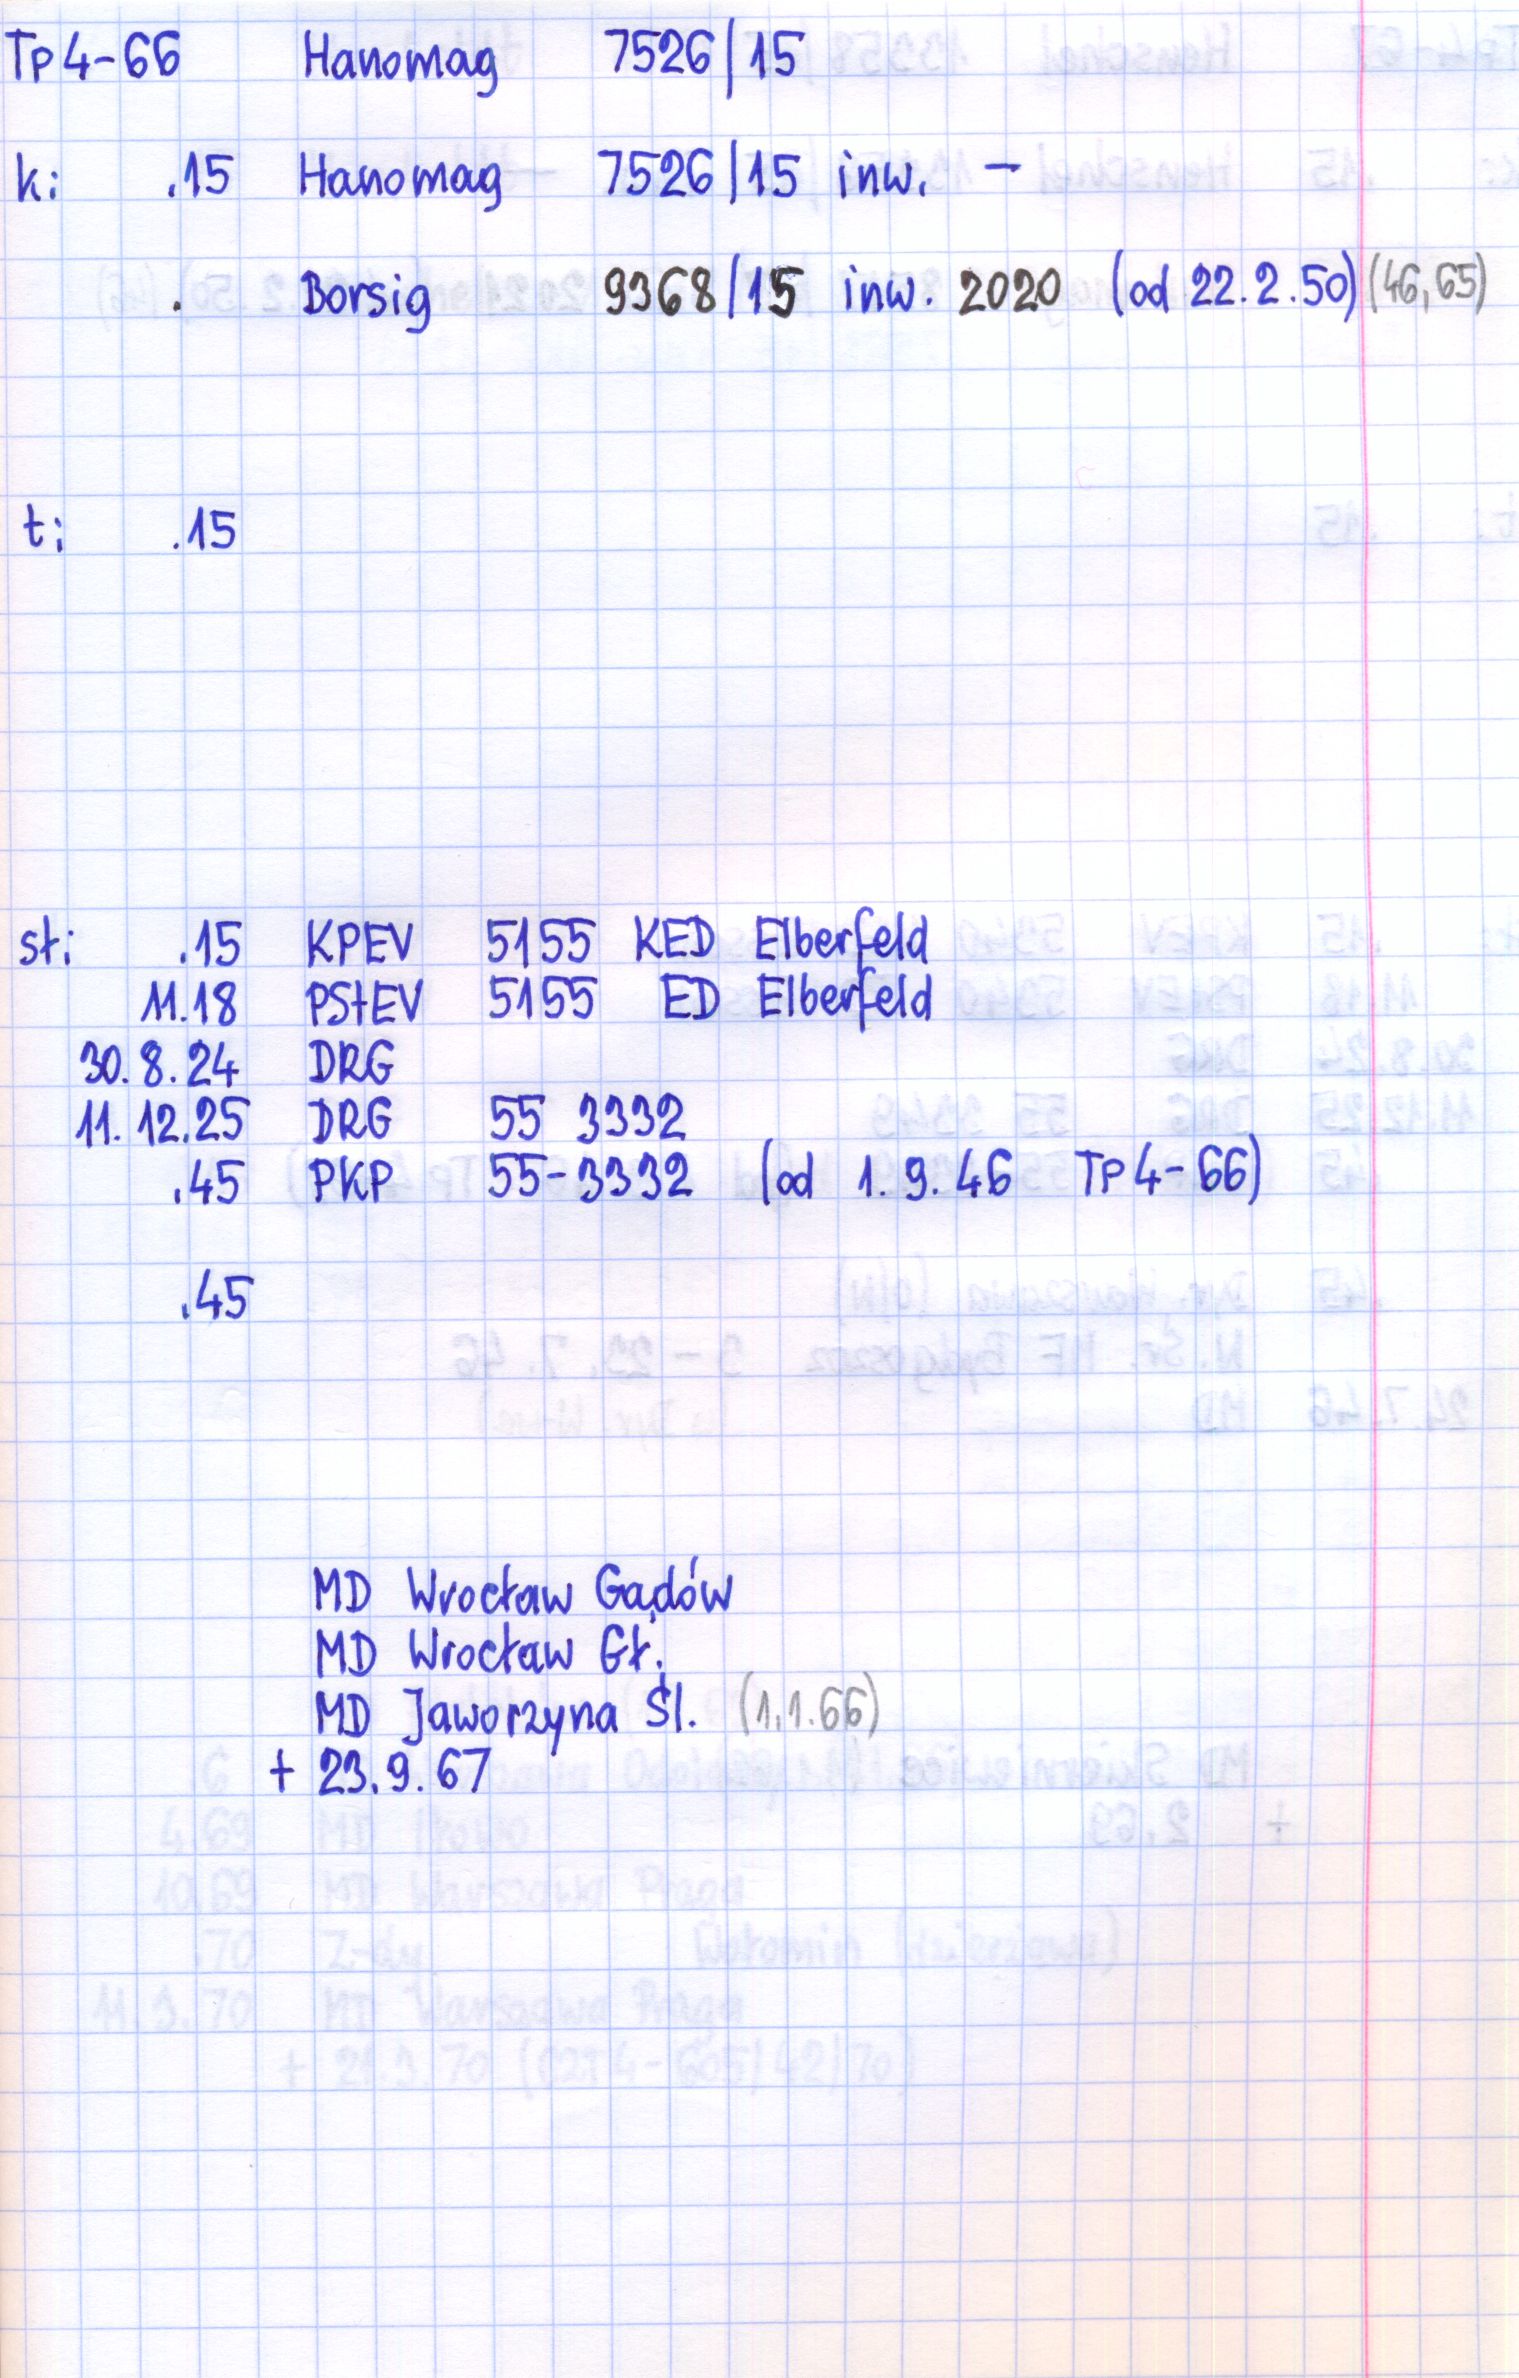 Tp4-66 Hanomag 7526/15
k: .15 Hanomag 7526/15 inw. –
. Borsig 9368/15 inw. 2020 (od 22.2.50) (46,65)
t: .15
st: .15 KPEV 5155 KED Elberfeld
11.18 PStEV 5155 ED Elberfeld
30.8.24 DRG
11.12.25 DRG 55 3332
.45 PKP 55-3332 (od 1.9.46 Tp4-66)
.45
MD Wrocław Gądów
MD Wrocław Gł.
MD Jaworzyna Śl. (1.1.66)
+ 23.9.67